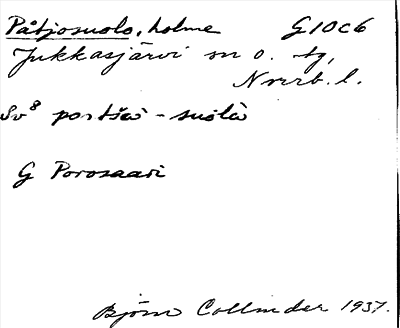 Påtjosuolo, holme G10c6
Jukkasjärvi sn o. tg,
Nrrb. l.
Sv⁸ portšɛi - suolȧ
G Porosaari
Björn Collinder 1937.